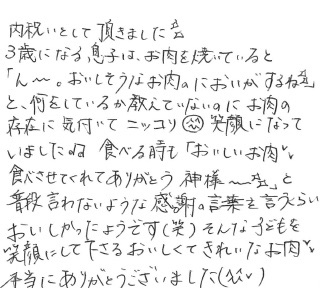 内祝いとして頂きました
3歳になる息子は、お肉を焼いていると
「ん〜。おいしそうなお肉のにおいがするね」
と、何をしているか教えていないのにお肉の
存在に気付いてニッコリ 笑顔になって
いましたね 食べる時も「おいしいお肉
食べさせてくれてありがとう 神様〜」と
普段言わないような感謝の言葉を言うくらい
おいしかったようです(笑) そんな子どもを
笑顔にして下さるおいしくてきれいなお肉
本当にありがとうございました(^^)